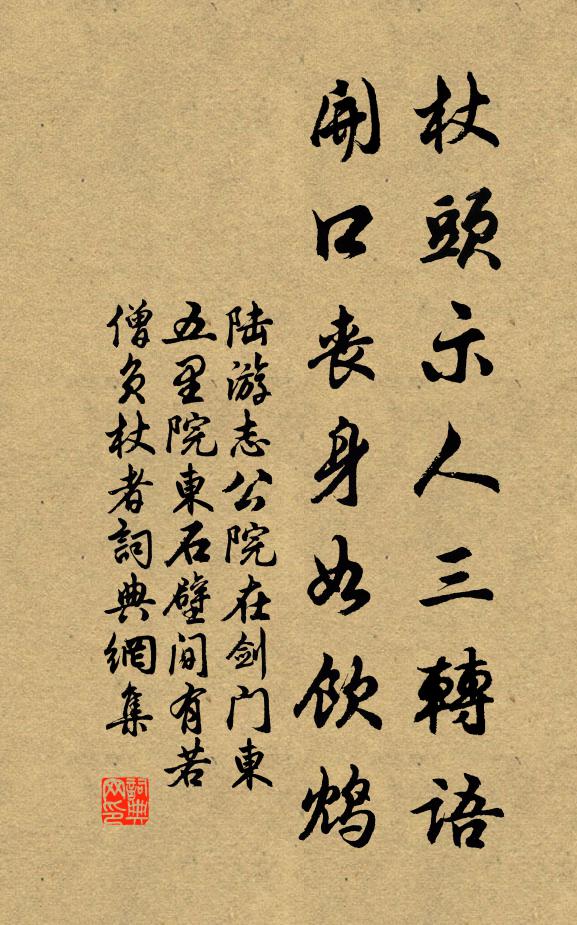 杖頭示人三轉語
開口喪身如飲鴆
陆游志公院在剑门東
五里院東石壁间有若
僧負杖者詞典網集
詞典网印